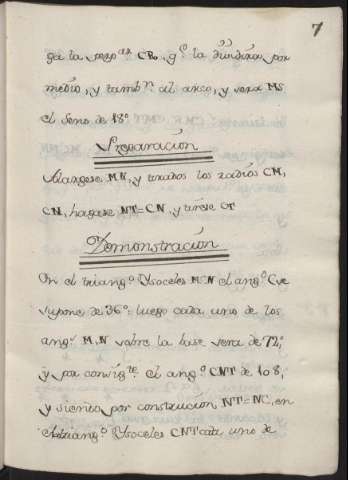 7
ga la perp.ar CR, q.e la dividirá por
medio, y tamb.n al arco, y sera MS
el Seno de 18.º
Preparación
Alarguese MN, y tirados los radios CM,
CN, hagase NT=CN, y tirese CT
Demonstración
En el triang.º Ysoceles MCN el ang.º C se
supone de 36.º luego cada uno de los
ang.s M, N sobre la base sera de 72.º,
y por consig.te el ang.º CNT de 108,
y siendo por construcción NT=NC, en
el triang.º Ysoceles CNT cada uno de